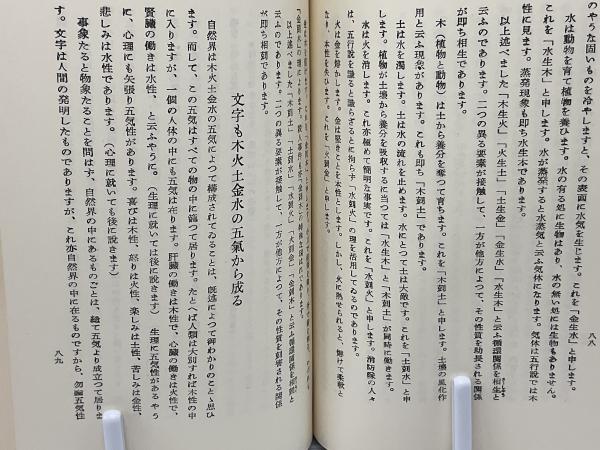 のやうな固いものを冷やしますと、その表面に水気を生じます。これを「金生水」と申します。
水は動物を育て植物を養ひます。水の有る処に生物はあり、水の無い処には生物もありません。
これを「水生木」と申します。水が蒸発すると水蒸気と云ふ気体になります。気体は五行説では木
性に見ます。蒸発現象も即ち水生木であります。
以上述べました「木生火」「火生土」「土生金」「金生水」「水生木」と云ふ循環関係を相生と
云ふのであります。二つの異る要素が接触して、一方が他方によつて、その性質を助長される関係
が即ち相生であります。
木（植物と動物）は土から養分を奪つて育ちます。これを「木剋土」と申します。土壌の風化作
用と云ふ現象があります。これも即ち「木剋土」であります。
土は水を濁します。土は水の流れを止めます。水にとつて土は大敵です。これを「土剋水」と申
します。植物が土壌から養分を吸収するに当つては「水生木」と「木剋土」が同時に働きます。
水は火を消します。これ亦極めて簡明な事実です。これを「水剋火」と申します。消防隊の人々
は、五行説を識ると識らざるとに拘らず「水剋火」の理を活用してゐるのであります。
火は金を熔かします。金は堅きことを本性とします。しかし、火に熱せられると、熔けて柔軟と
なり、本性を失ひます。これを「火剋金」と申します。
八八
以上述べました「木剋土」「土剋水」「水剋火」「火剋金」「金剋木」と云ふ循環関係を相剋と
云ふのであります。二つの異る要素が接触して、一方が他方によつて、その性質を刻害される関係
が即ち相剋であります。
文字も木火土金水の五氣から成る
自然界は木火土金水の五気によつて構成されてゐることは、既述によつて御わかりのことと思ひ
ます。而して、この五気はすべての物の中に籠つて居ります。たとへば人類は大別すれば木性の中
に入りますが、一個の人体の中にも五気は在ります。肝臓の働きは木性で、心臓の働きは火性で、
腎臓の働きは水性、と云ふやうに。（生理に就いては後に説きます）生理に五気性があるやう
に、心理にも矢張り五気性があります。喜びは木性、怒りは火性、楽しみは土性、苦しみは金性、
悲しみは水性であります。（心理に就いても後に説きます）
事象たると物象たることを問はず、自然界の中にあるものごとは、総て五気より成立つて居りま
す。文字は人間の発明したものでありますが、これ亦自然界の中に在るものですから、勿論五気性
八九